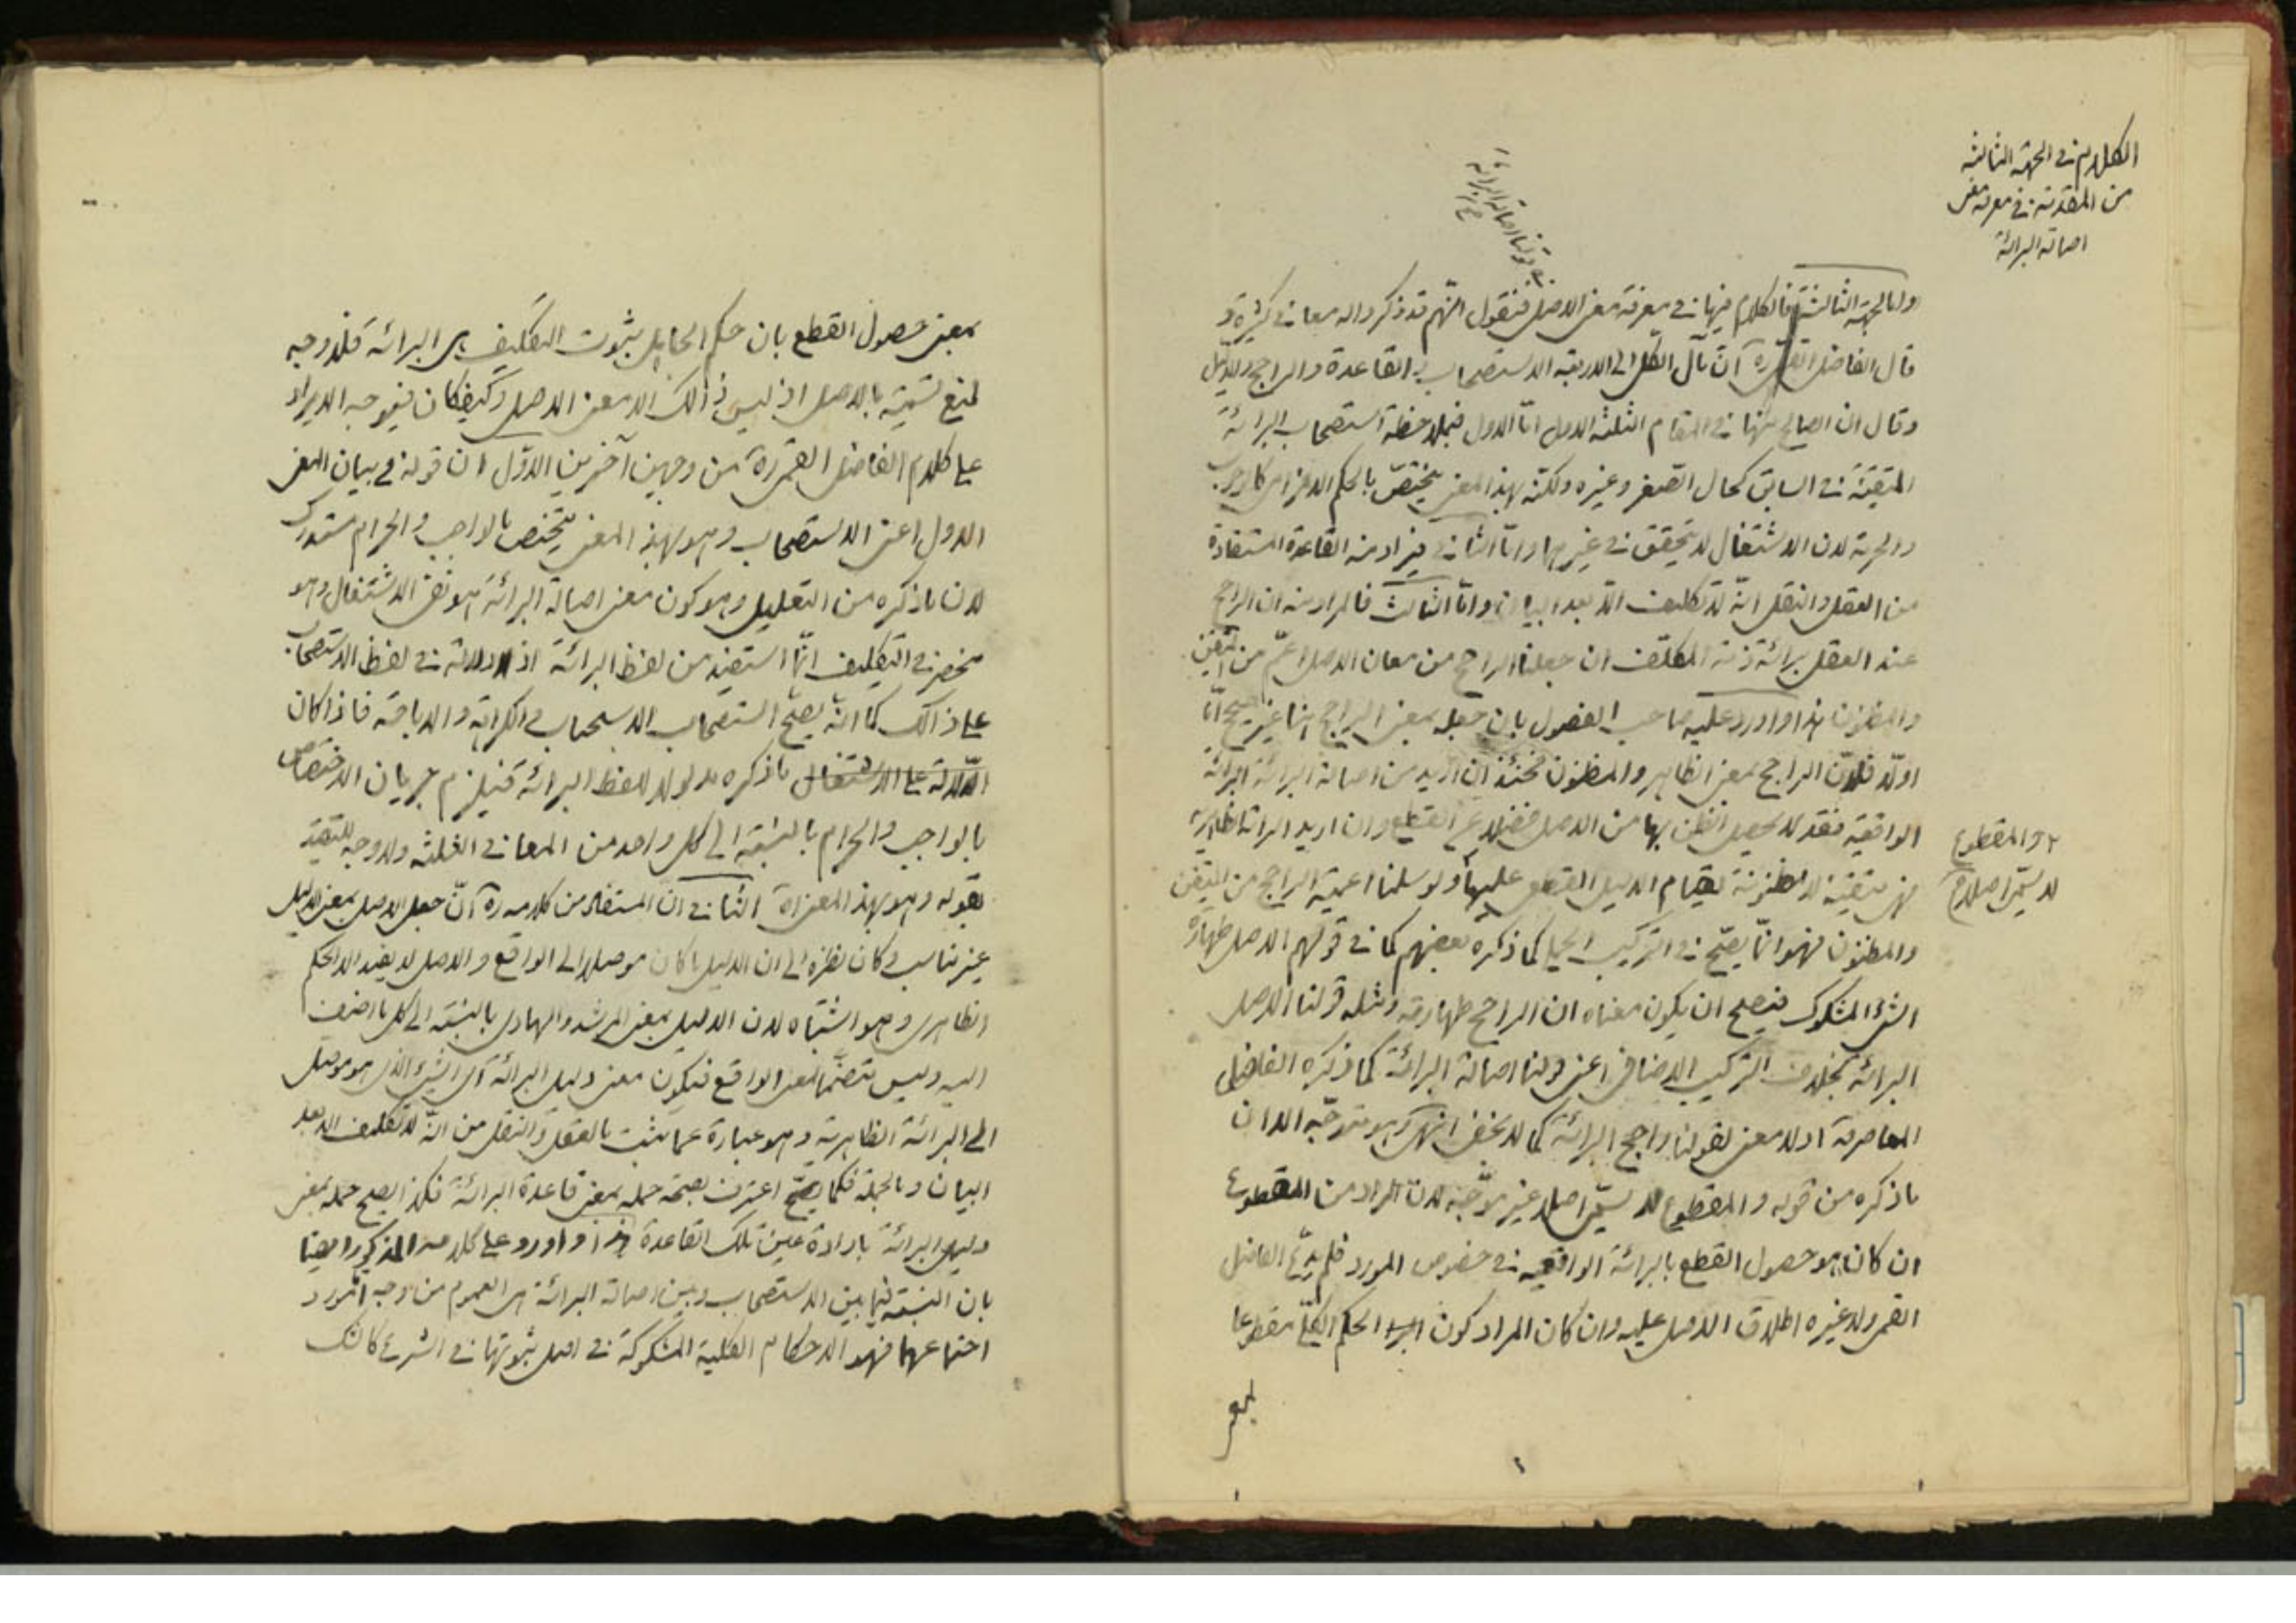 الكلام في الجهة الثالثة
من المقدمة في معرفة معنى
اصالة البرائة
في قولنا اصالة البرائة
واما الجهة الثالثة فالكلام فيها في معرفة معنى الاصل فنقول انهم قد ذكروا له معاني كثيرة و
قال الفاضل القمي ره ان مآل الكل الى الاربعة الاستصحاب والقاعدة والراجح والدليل
وقال ان الصالح منها في المقام الثلثة الاول اما الاول فبملاحظة استصحاب البرائة
المتيقنة في السابق كحال الصغر وغيره ولكنه بهذا المعنى يختص بالحكم الالزامي كالوجوب
والحرمة لان الاشتغال لا يتحقق في غيرهما واما الثاني فيراد منه القاعدة المستفادة
من العقل والنقل انه لا تكليف الا بعد البيان واما الثالث فالمراد منه ان الراجح
عند العقل برائة ذمة المكلف ان جعلنا الراجح من معان الاصل اعم من المتيقن
والمظنون هذا واورد عليه صاحب الفصول بان جعله بمعنى الراجح هنا غير صحيح اما
اولا فلان الراجح بمعنى الظاهر والمظنون فحينئذ ان اريد من اصالة البرائة البرائة
الواقعية فقد لا يحصل الظن بها من الاصل فضلا عن القطع وان اريد البرائة الظاهرية
فهي متيقنة لا مظنونة لقيام الدليل القطعي عليها ولو سلمنا اعمية الراجح من المتيقن
والمقطوع
لا يسمى اصلا
والمظنون فهو انما يصح في التركيب الحملي كما ذكره بعضهم كما في قولهم الاصل طهارة
الشئ المشكوك فيصلح ان يكون معناه ان الراجح طهارته ومثله قولنا الاصل
البرائة بخلاف التركيب الاضافي اعني قولنا اصالة البرائة كما ذكره الفاضل
المعاصر فانه اذ لا معنى لقولنا راجح البرائة كما لا يخفى انتهى وهو متوجه الا ان
ما ذكره من قوله والمقطوع لا يسمى اصلا غير موجه لان المراد من المقطوع
ان كان هو حصول القطع بالبرائة الواقعية في خصوص المورد فلم يدع الفاضل
القمي ولا غيره اطلاق الاصل عليه وان كان المراد كون الحكم الكلي مقطوعا
بمعنى
بمعنى حصول القطع بان حكم الجاهل بثبوت التكليف هي البرائة فلا وجه
لمنع تسميته بالاصل اذ ليس ذلك الا معنى الاصل وكيف كان فيتوجه الايراد
على كلام الفاضل القمي ره من وجهين آخرين الاول ان قوله في بيان المعنى
الاول اعني الاستصحاب وهو بهذا المعنى يختص بالواجب والحرام مستدرك
لان ما ذكره من التعليل وهو كون معنى اصالة البرائة هو نفي الاشتغال وهو
منحصر في التكليف انما استفيد من لفظ البرائة اذ لا دلالة في لفظ الاستصحاب
على ذلك كما انه يصح استصحاب الاستحباب والكراهة والاباحة فاذا كان
ما ذكره مدلولا للفظ البرائة فيلزم جريان الاختصاص
بالواجب والحرام بالنسبة الى كل واحد من المعاني الثلثة ولا وجه لتقييد
بقوله وهو بهذا المعنى اه الثاني ان المستفاد من كلامه ره ان جعل الاصل بمعنى الدليل
غير مناسب وكان نظره الى ان الدليل ما كان موصلا الى الواقع والاصل لا يفيد الا الحكم
الظاهري وهو اشتباه لان الدليل بمعنى المرشد والهادي بالنسبة الى كل ما اضيف
اليه وليس متضمنا لمعنى الواقع فيكون معنى دليل البرائة اي الشئ الذي هو موصل
الى البرائة الظاهرية وهو عبارة عما يثبت بالعقل والنقل من انه لا تكليف الا بعد
البيان وبالجملة فكما يصح اعترف بصحة حمله بمعنى قاعدة البرائة فكذا يصح حمله بمعنى
دليل البرائة بارادة عين تلك القاعدة هذا واورد على كلامه المذكور ايضا
بان النسبة فيما بين الاستصحاب وبين اصالة البرائة هي العموم من وجه اما مورد
اجتماعهما فهو الاحكام الكلية المشكوكة في اصل ثبوتها في الشرع كالشك